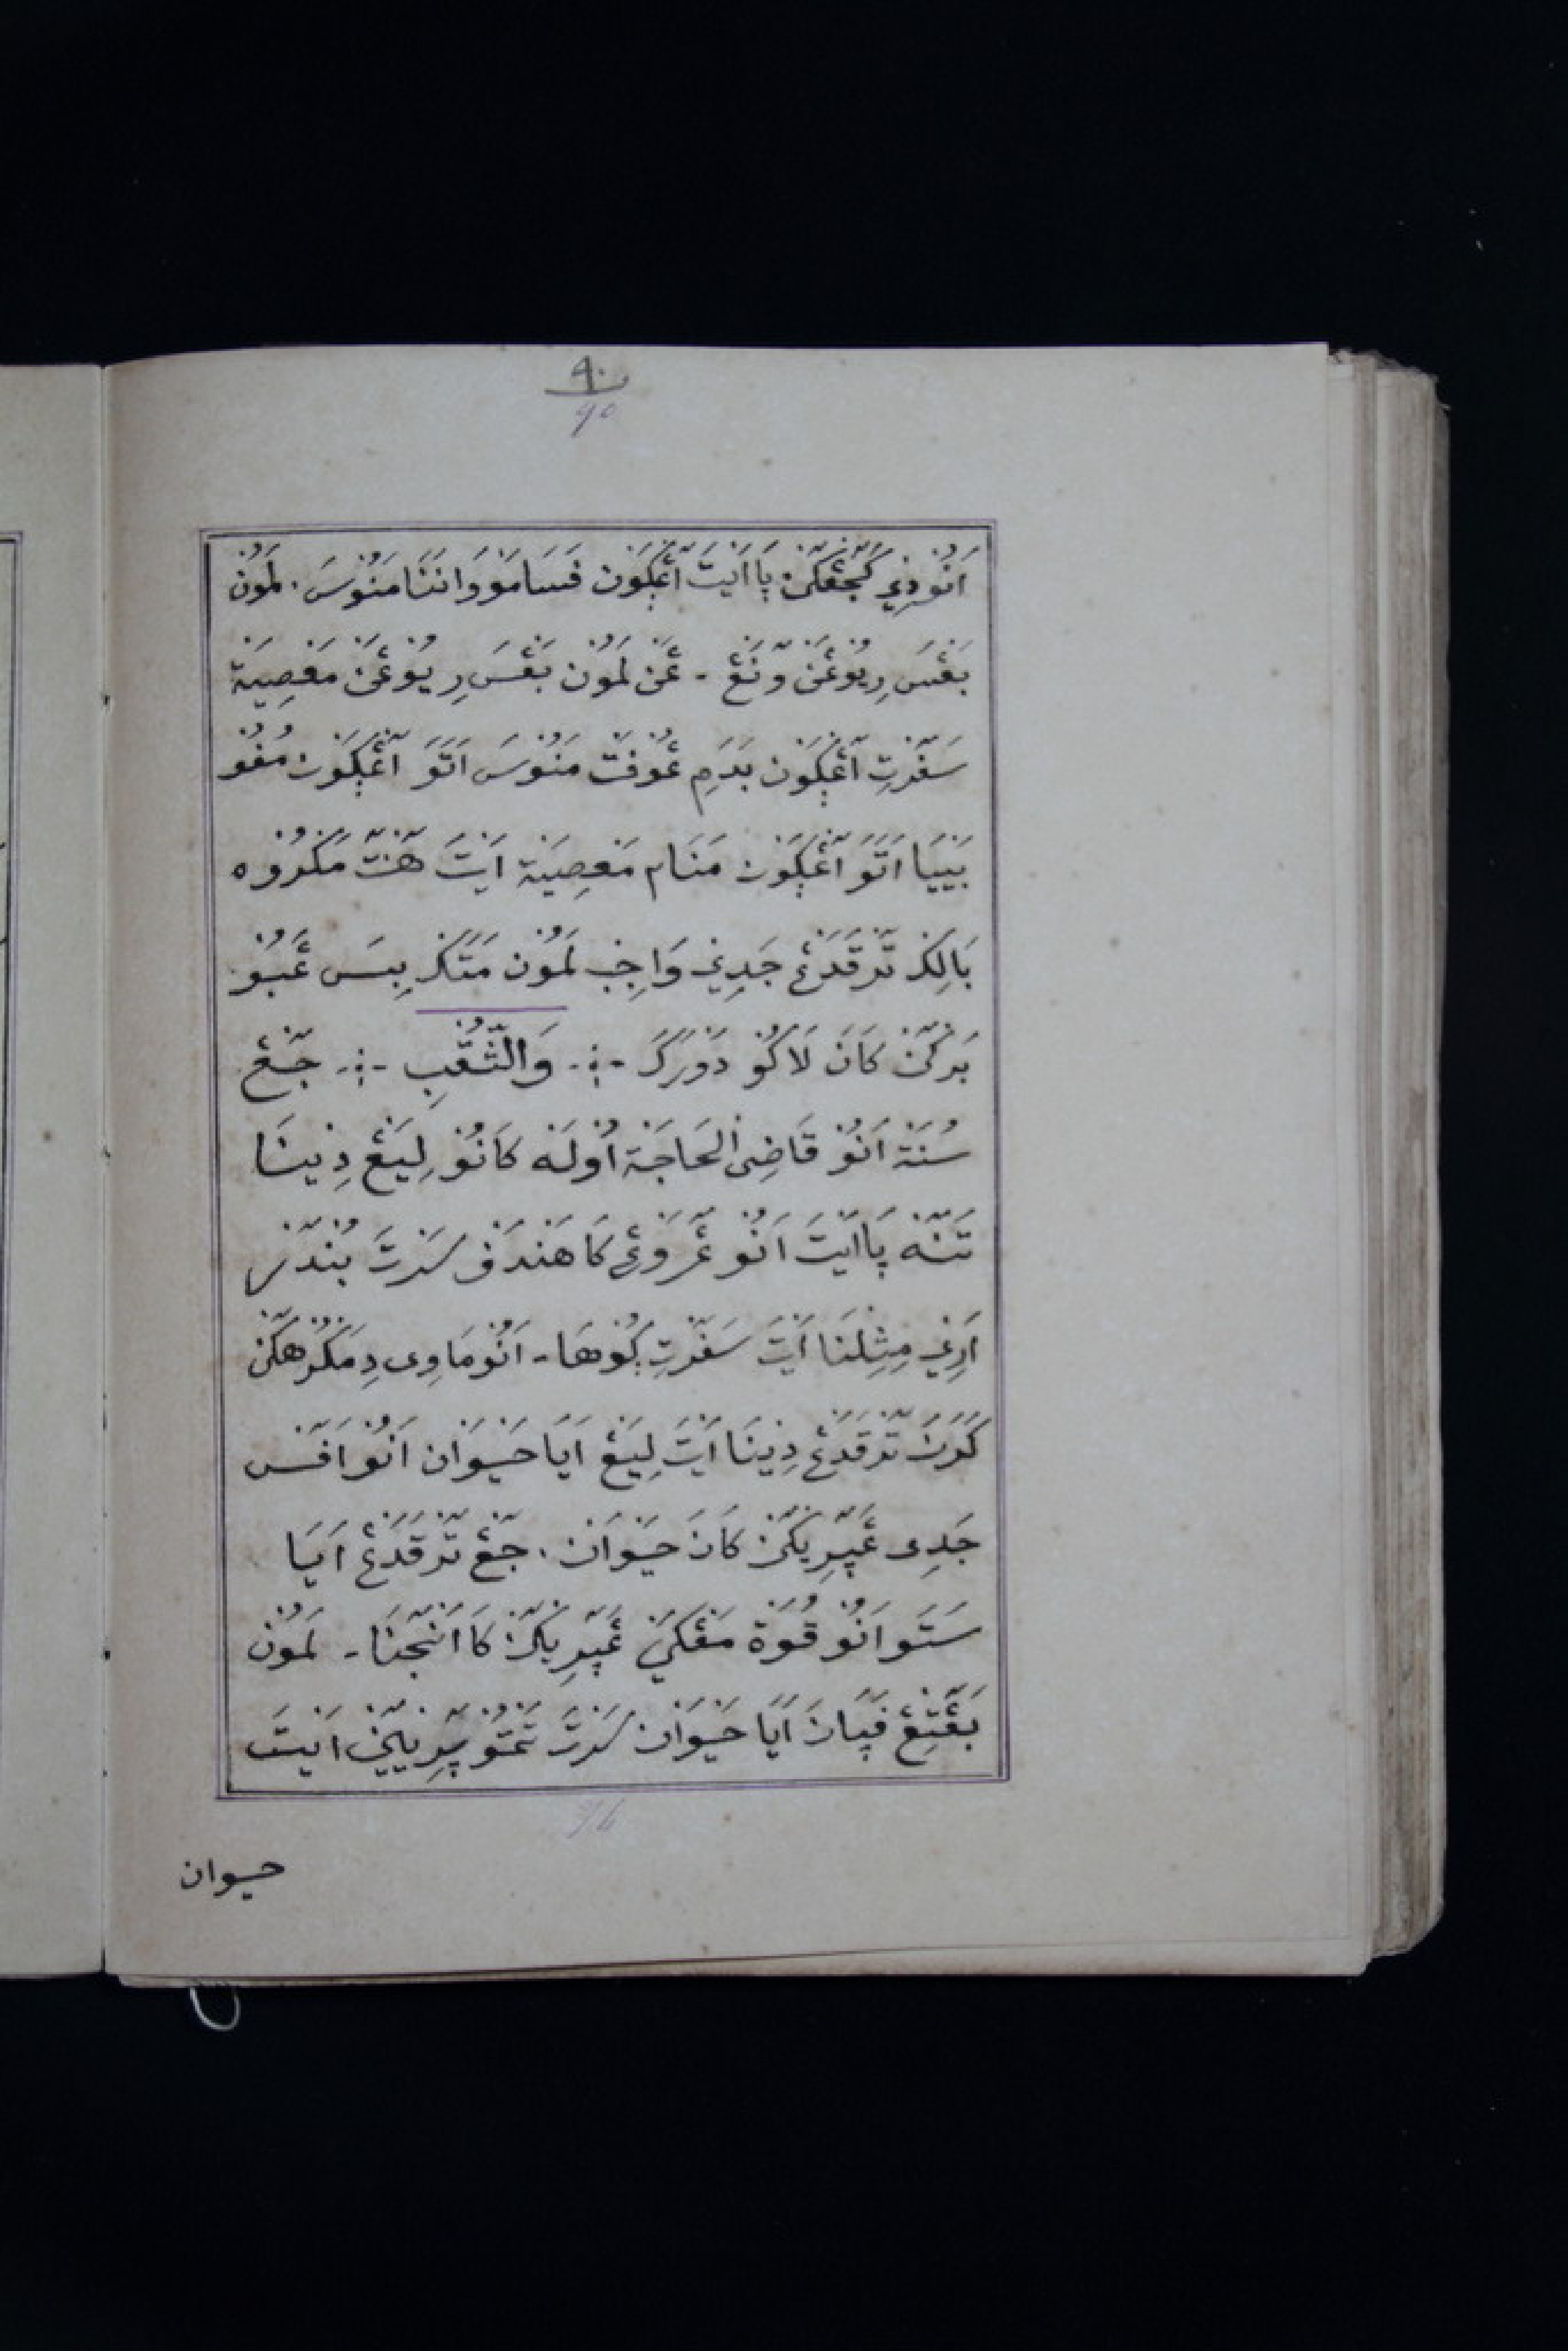 ٩٠
90
اَنُو دِيْ كَجَڠْكٓنْ ݒَا اَيْتَ اٰڠْݢَوْن فَسَامَوْوَانْنَنَا مَنُوْسَ . لَمُوْن
بَڠْسَ رِيُوْڠَنْ وٓنَڠْ - ڠَنْ لَمُوْن بَڠْسَ رِيُوْڠَنْ مَعْصِيَةْ
سَڤٓرْتِ اٰڠْݢَوْن بَدَمِ عُوْفَتْ مَنُوْسَ اَتَوَ اٰڠْݢَوْن مُفُوْ
بَيْيَا اَتَوَ اٰڠْݢَوْن مَنَام مَعْصِيَةْ اَيْتَ هٓنْتٓ مَكْرُوْه
بَالِكَرْ تٓرْقَدَڠْ جَدِيْ وَاجِبْ لَمُوْن مَتَكْ بِيسَ عَبُوْ
بَرْكٓنْ كَانَ لَاكُوْ دَوْرَكَ -:- وَالثُّقْبِ -:- جٓڠْ
سُنَةْ اَنُوْ قَاضِى الْحَاجَةْ اُوْلَهْ كَانُوْ لِيَڠْ دِيْنَا
تَنٓهْ ݒَا اَيْتَ اَنُوْ عَرَوْڠْ كَا هَنْدَفْ سَرْتَ بُنْدٓرْ
اَرِيْ مِثِلْنَا اَيْتَ سَفٓرْتِ ݢُوْهَا - اَنُوْ مَاوِى دِمَكْرُهْكٓنْ
كَرَنَ تٓرْقَدَڠْ دِيْنَا اَيْتَ لِيَڠْ اَيَا حَيْوَان اَنُوْ اَفٓسْ
جَدِى عَݒٓرِيْكٓنْ كَانَ حَيْوَانْ . جٓڠْ تٓرْقَدَڠْ اَيَا
سَتَوَ اَنُوْ قُوَةْ مَڠْكَيْ عَݒٓرِيْكٓنْ كَا اَنْجٓنَا - لَمُوْن
بَڠٓتِڠْ فَݒَانَ اَيَا حَيْوَان سَرْتَ تَمْتُوْ ݒٓرِيْيٓنْ اَيْتَ
حيوان